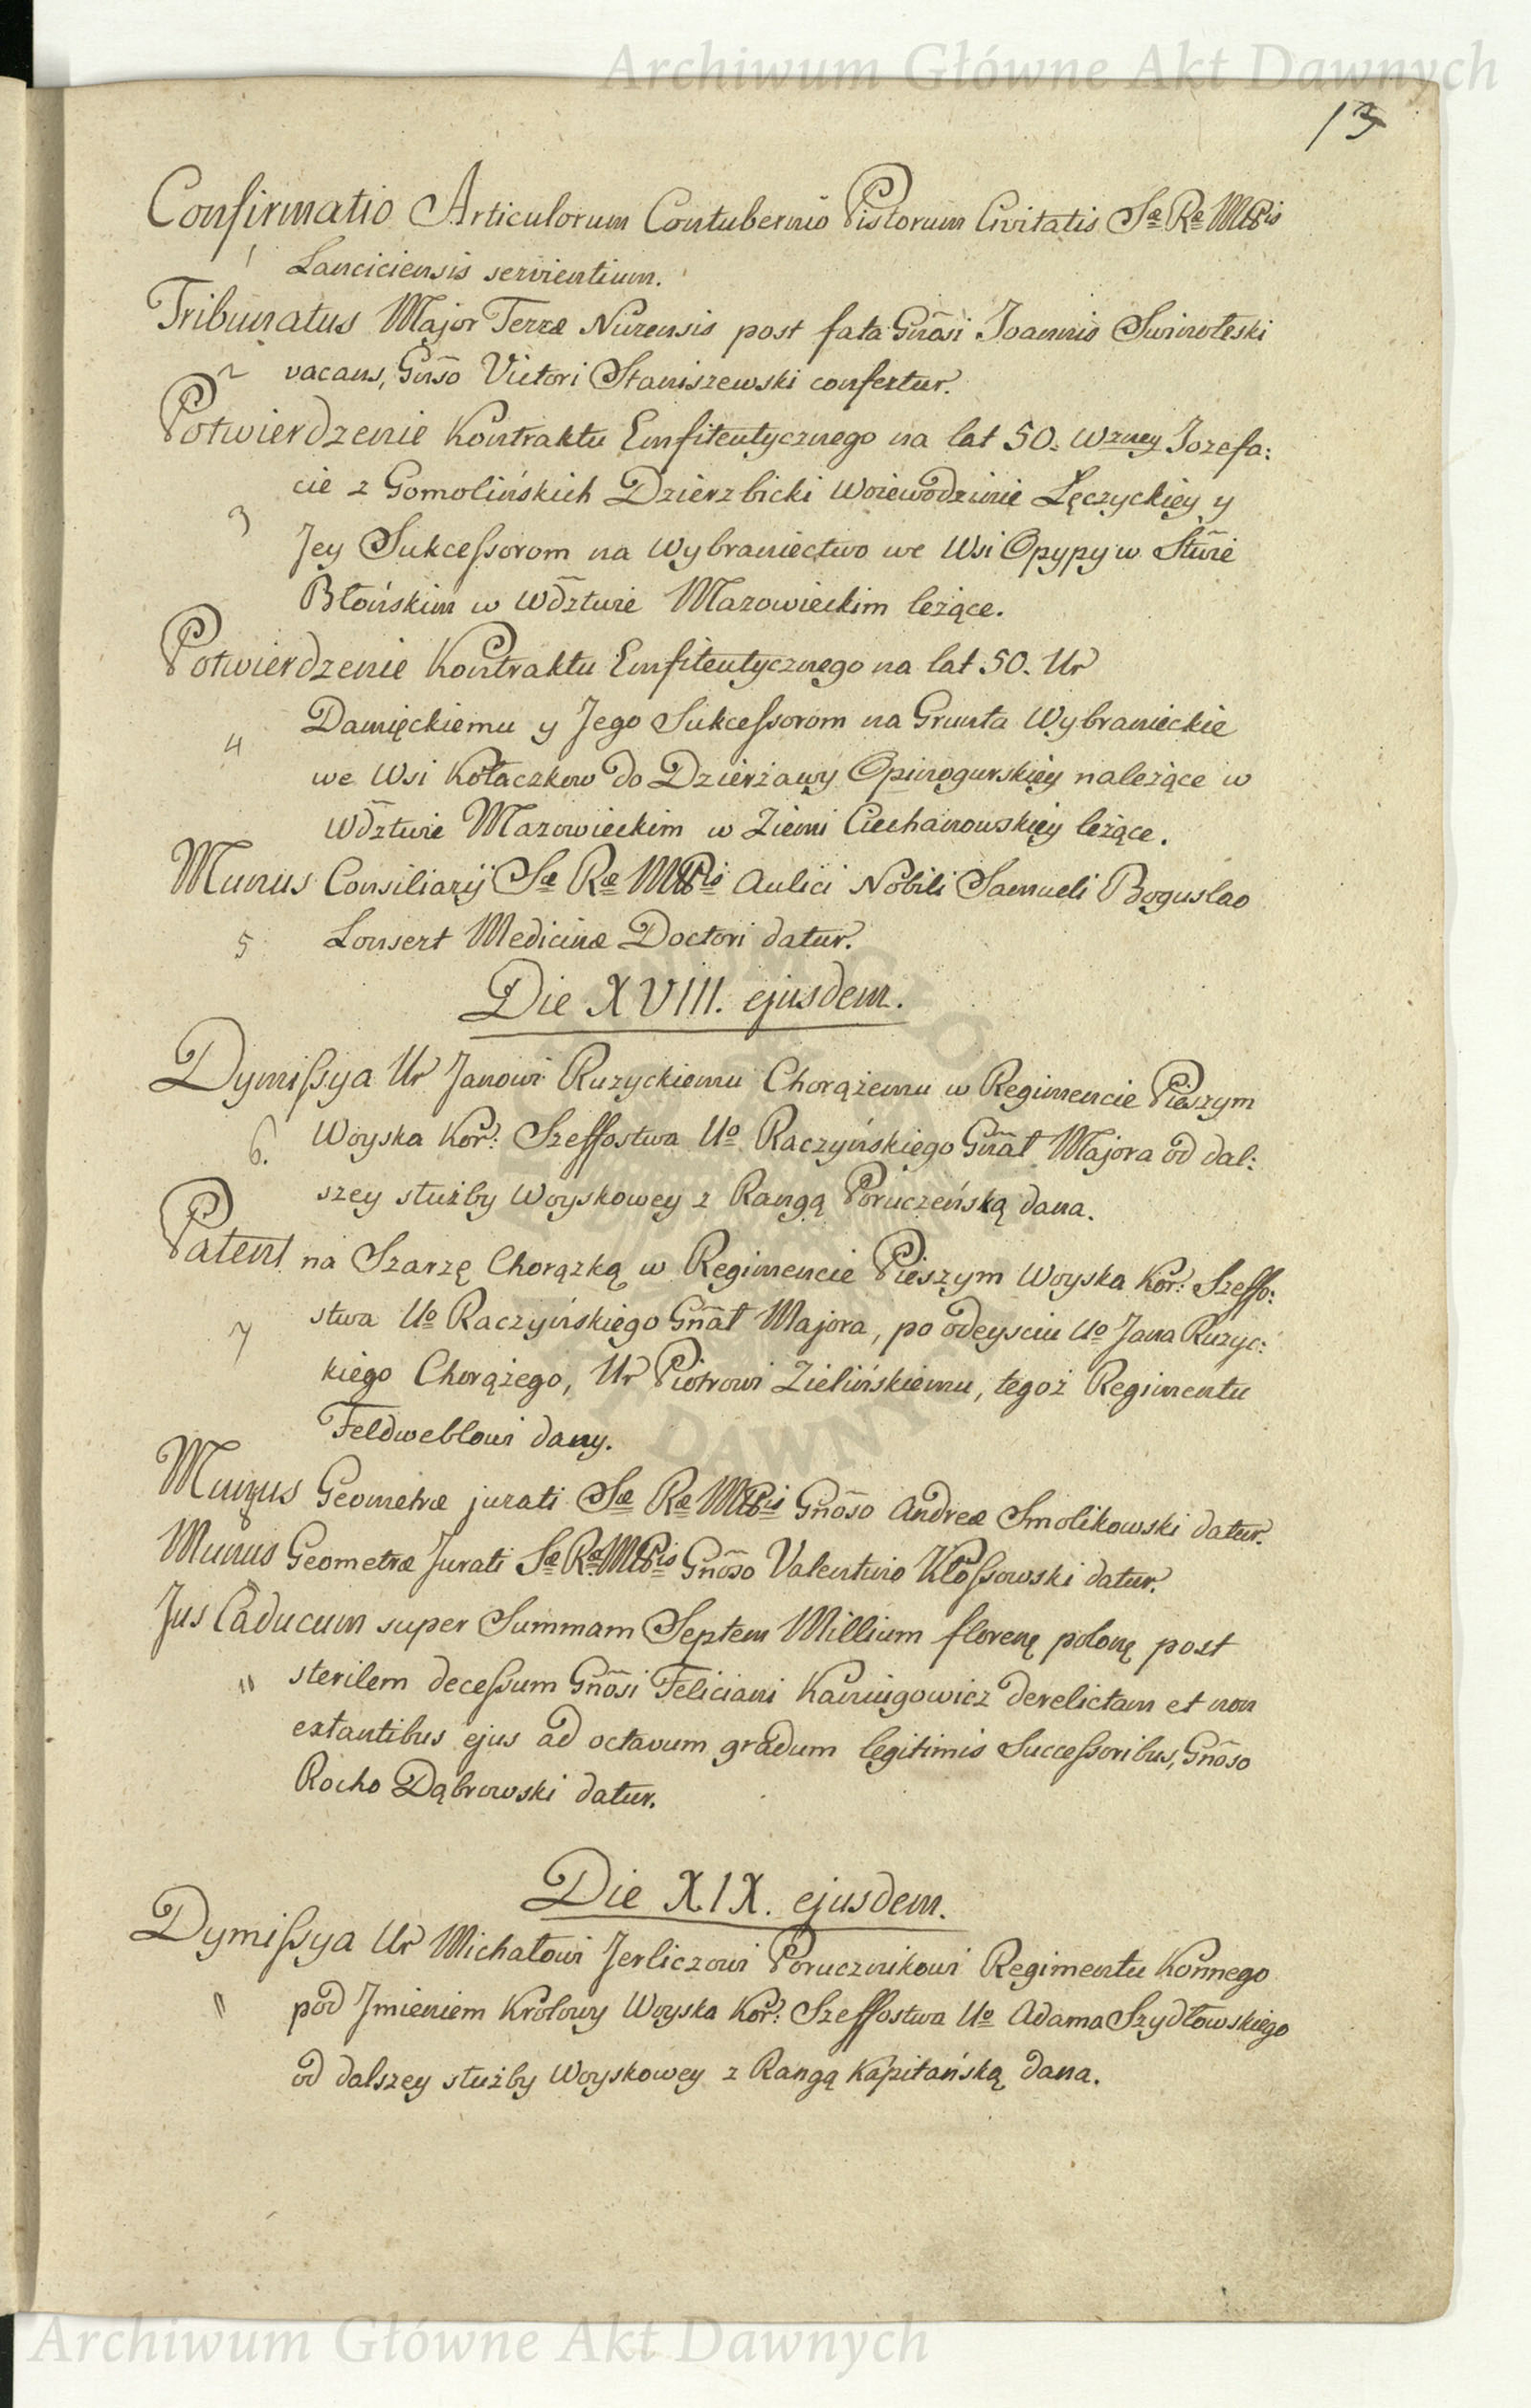 Archiwum Główne Akt Dawnych
13
Confirmatio Articulorum Contubernio Pistorum Civitatis Sæ Ræ Mttis
1 Lanciciensis servientium.
Tribunatus Major Terræ Nurensis post fata Gnosi Joannis Swinoleski
2 vacans, Gnso Victori Staniszewski confertur.
Potwierdzenie Kontraktu Emfiteutycznego na lat 50. Wzney Jozefa:
cie z Gomolińskich Dzierzbicki Woiewodzinie Łęczyckiey y
3 Jey Sukcessorom na Wybraniectwo we Wsi Opypy w Stwie
Błońskim w Wdztwie Mazowieckim leżące.
Potwierdzenie Kontraktu Emfiteutycznego na lat 50. Ur
Damięckiemu y Jego Sukcessorom na Grunta Wybranieckie
4 we Wsi Kołaczkow do Dzierżawy Opinogurskiey należące w
Wdztwie Mazowieckim w Ziemi Ciechanowskiey leżące.
Munus Consiliarij Sæ Ræ Mttis Aulici Nobili Samueli Boguslao
5 Lonsert Medicinæ Doctori datur.
Die XVIII. ejusdem.
Dymissya Ur Janowi Ruzyckiemu Chorążemu w Regimencie Pieszym
6. Woyska Kor: Szeffostwa Uo Raczyńskiego Gnał Majora od dal:
szey służby Woyskowey z Rangą Poruczeńską dana.
Patent na Szarzę Chorązką w Regimencie Pieszym Woyska Kor: Szeffo:
7 stwa Uo Raczyńskiego Gnał Majora, po odeysciu Uo Jana Ruzyc:
kiego Chorążego, Ur Piotrowi Zielińskiemu, tegoż Regimentu
Feldweblowi dany.
Munus Geometræ jurati Sæ Ræ Mttis Gnoso Andreæ Smolikowski datur.
8
Munus Geometræ Jurati Sæ Ræ Mttis Gnoso Valentino Kłossowski datur.
Jus Caducum super Summam Septem Millium florenę polonę post
" sterilem decessum Gnosi Feliciani Kaniigowicz derelictam et non
extantibus ejus ad octavum gradum legitimis Successoribus, Gnoso
Rocho Dąbrowski datur.
Die XIX. ejusdem.
Dymissya Ur Michałowi Jerliczowi Porucznikowi Regimentu Konnego
" pod Jmieniem Krolowy Woyska Kor: Szeffostwa Uo Adama Szydłowskiego
od dalszey służby Woyskowey z Rangą Kapitańską dana.
Archiwum Główne Akt Dawnych